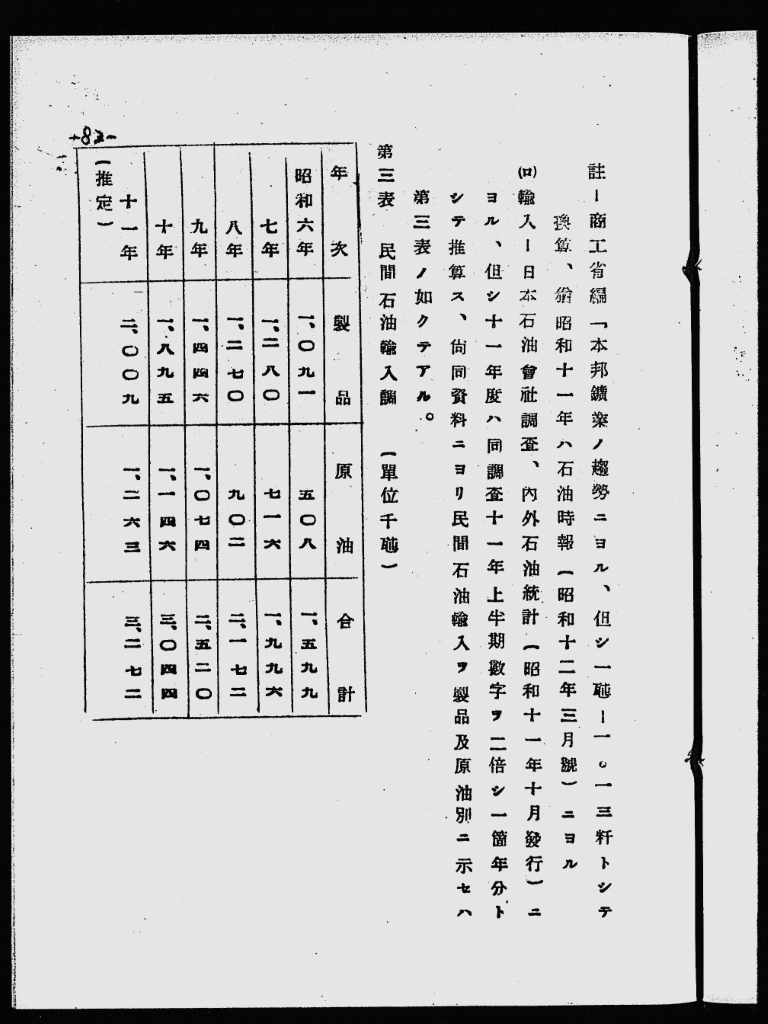 註ー商工省編「本邦鑛業ノ趨勢ニヨル、但シ一噸ー一。一三粁トシテ
換算、猶昭和十一年ハ石油時報(昭和十二年三月號)ニヨル
(ロ)輸入ー日本石油會社調査、內外石油統計(昭和十一年十月發行)ニ
ヨル、但シ十一年度ハ同調査十一年上半期數字ヲ二倍シ一箇年分ト
シテ推算ス、尙同資料ニヨリ民間石油輸入ヲ製品及原油別ニ示セハ
第三表ノ如クテアル。
第三表 民間石油輸入調 (單位千噸)
年次 製品 原油 合計
昭和六年 一、〇九一 五〇八 一、五九九
七年 一、二八〇 七一六 一、九九六
八年 一、二七〇 九〇二 二、一七二
九年 一、四四六 一、〇七四 二、五二〇
十年 一、八九五 一、一四六 三、〇四四
十一年 二、〇〇九 一、二六三 三、二七二
(推定)
-82-